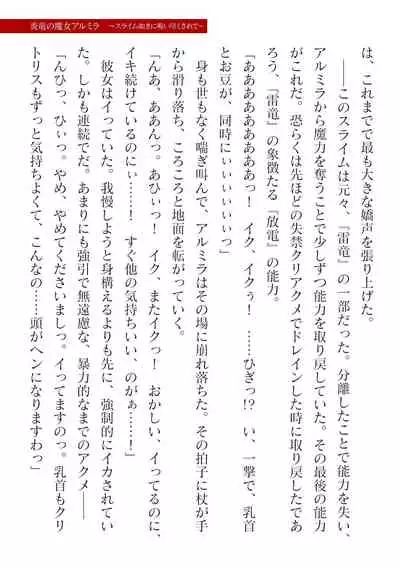 炎竜の魔女アルミラ　～スライム如きに吸い尽くされて～
は、これまでで最も大きな嬌声を張り上げた。
――このスライムは元々、『雷竜』の一部だった。分離したことで能力を失い、
アルミラから魔力を奪うことで少しずつ能力を取り戻していた。その最後の能力
がこれだ。恐らくは先ほどの失禁クリアクメでドレインした時に取り戻したであ
ろう、『雷竜』の象徴たる『放電』の能力。
「ああああああああぁっ！　イク、イクぅ！　……ひぎっ！？　い、一撃で、乳首
とお豆が、同時にぃぃぃぃぃぃっ」
身も世もなく喘ぎ叫んで、アルミラはその場に崩れ落ちた。その拍子に杖が手
から滑り落ち、ころころと地面を転がっていく。
「んあ、ああんっ。あひぃっ！　イク、またイクっ！　おかしい、イってるのに、
イキ続けているのにぃ……！　すぐ他の気持ちいい、のがぁ……！」
彼女はイっていた。我慢しようと身構えるよりも先に、強制的にイカされてい
た。しかも連続でだ。あまりにも強引で無遠慮な、暴力的なまでのアクメ――
「んひっ、ひぃっ。やめ、やめてくださいましっ。イってますのっ。乳首もクリ
トリスもずっと気持ちよくて、こんなの……頭がヘンになりますわっ」